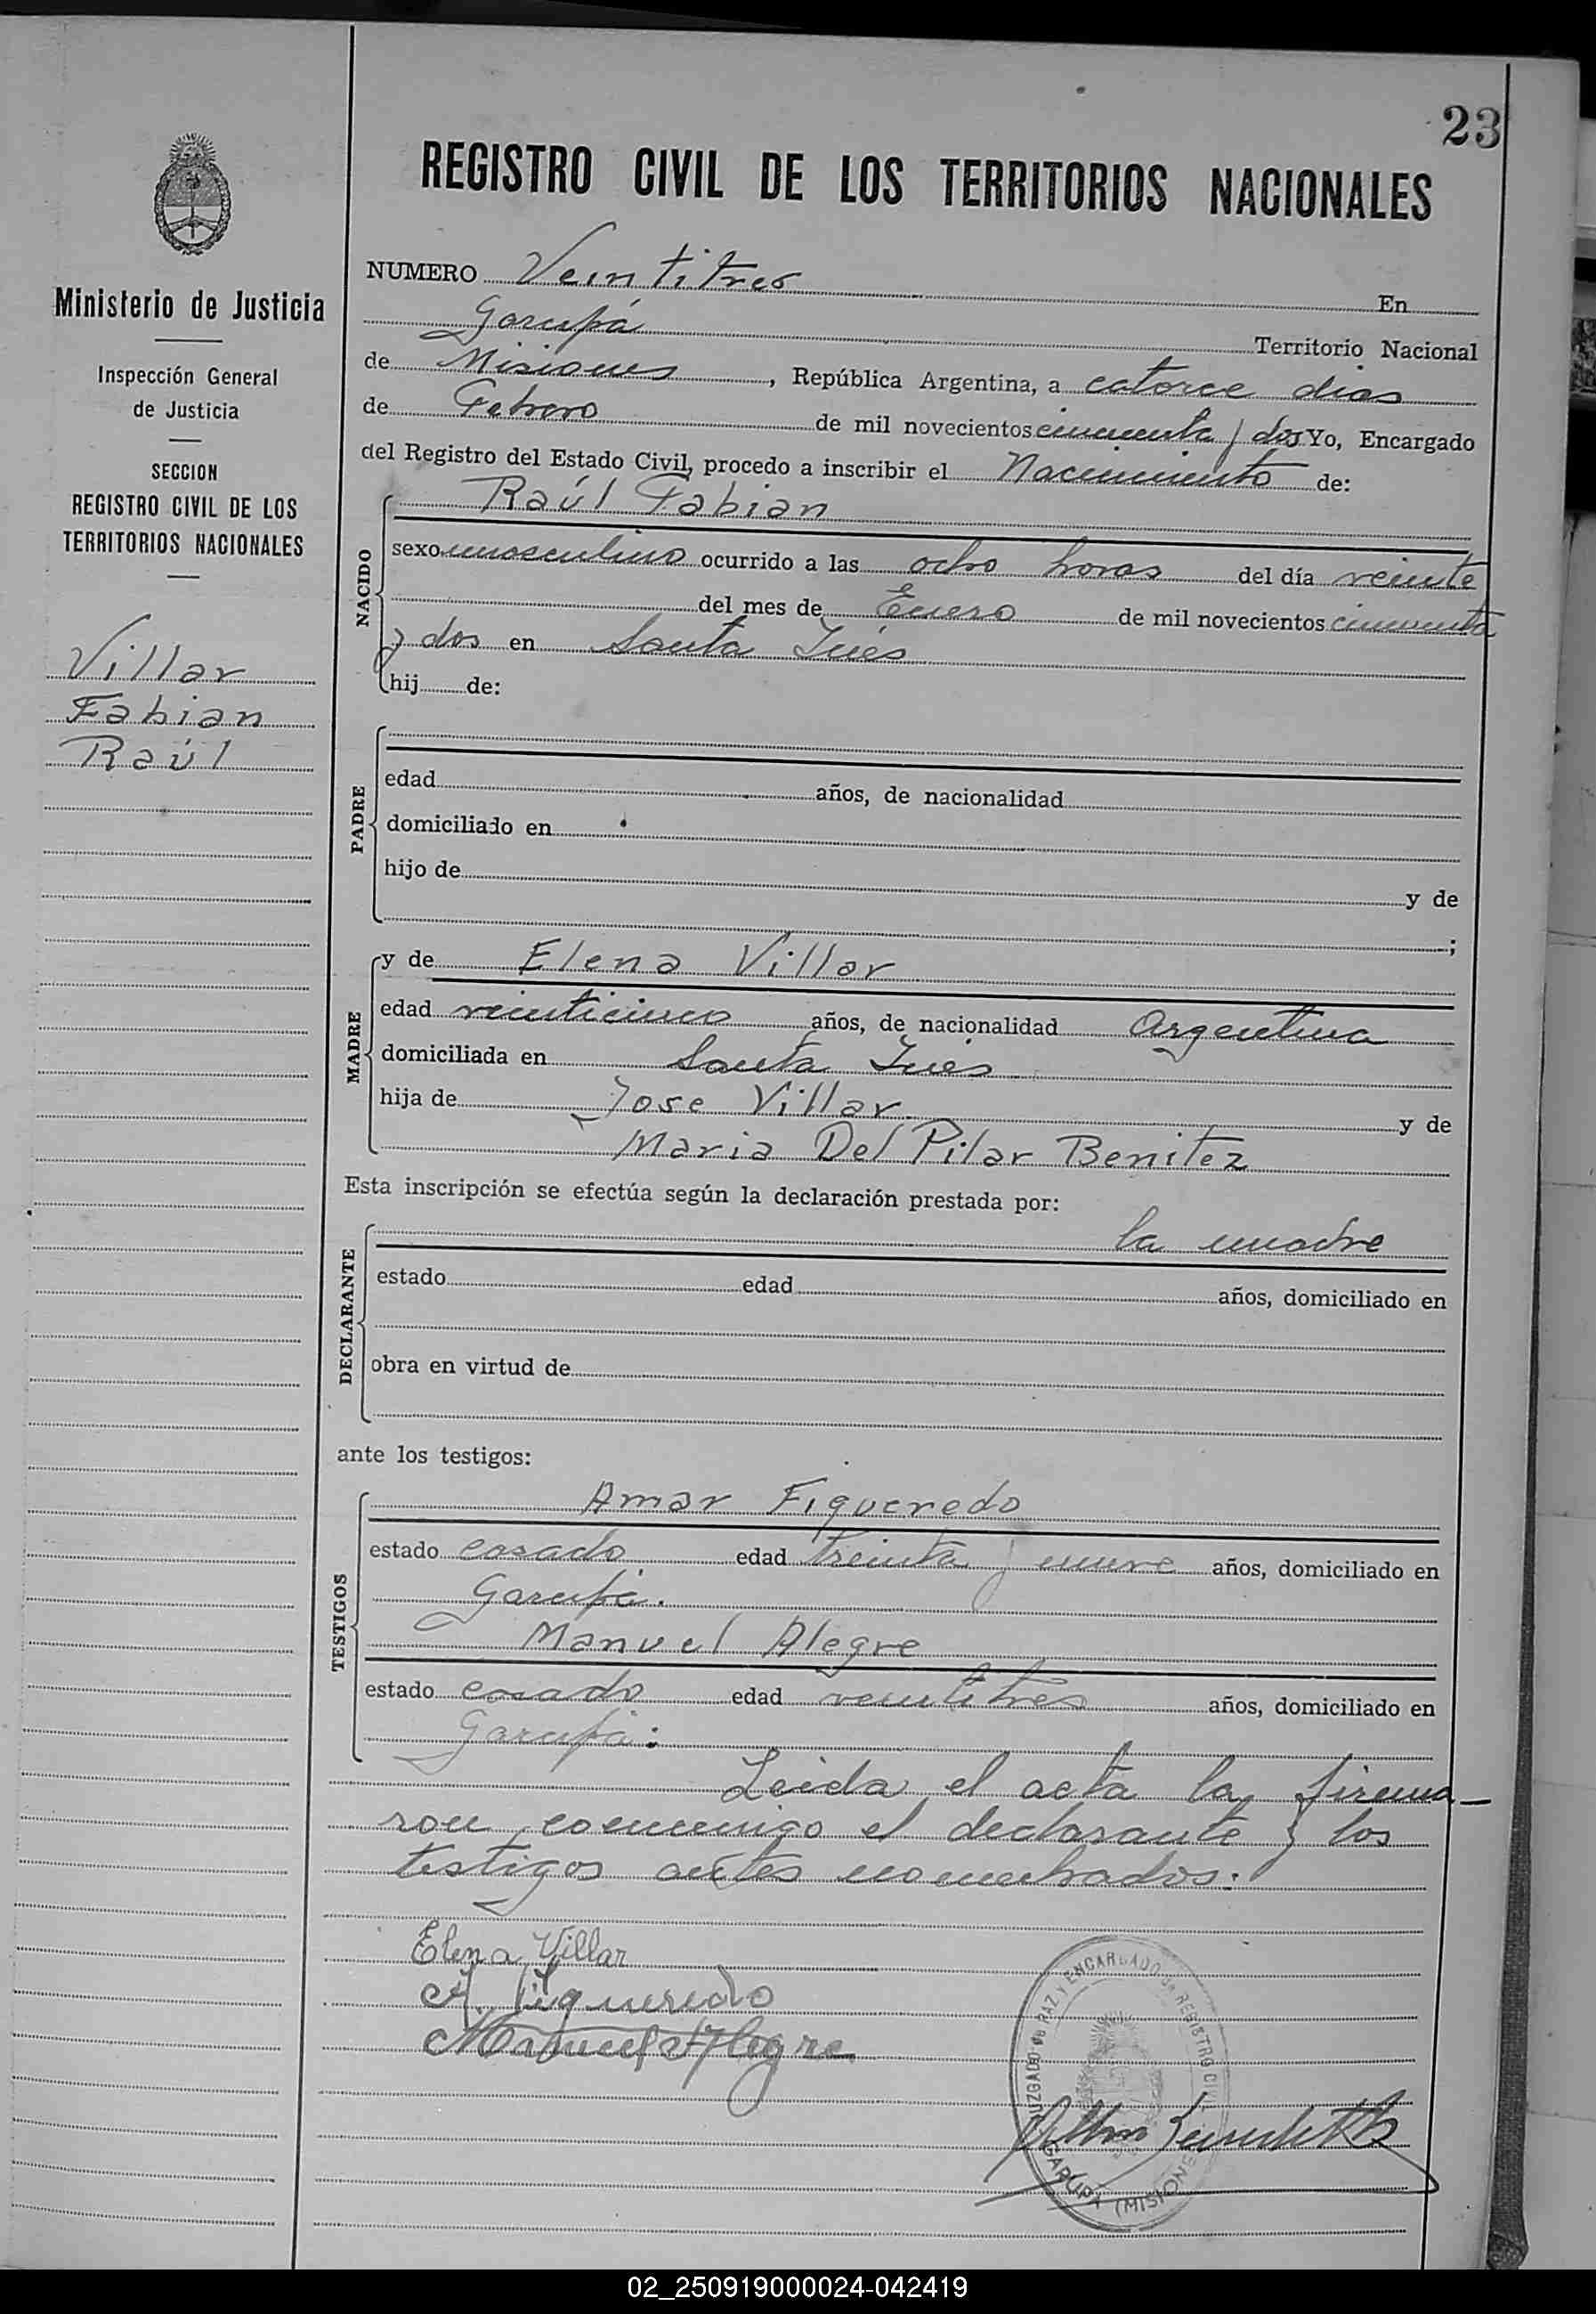 23
REGISTRO CIVIL DE LOS TERRITORIOS NACIONALES
Ministerio de Justicia
Inspección General
de Justicia
SECCION
REGISTRO CIVIL DE LOS
TERRITORIOS NACIONALES
Villar
Fabian
Raúl
NUMERO Veintitres En
Garupá Territorio Nacional
de Misiones, República Argentina, a catorce dias
de Febrero de mil novecientos cincuenta y dos Yo, Encargado
del Registro del Estado Civil, procedo a inscribir el Nacimiento de:
NACIDO
Raúl Fabian
sexo masculino ocurrido a las ocho horas del día veinte
del mes de Enero de mil novecientos cincuenta
y dos en Santa Inés
hij de:
PADRE
edad años, de nacionalidad
domiciliado en
hijo de y de
;
MADRE
y de Elena Villar
edad veinticinco años, de nacionalidad Argentina
domiciliada en Santa Inés
hija de Jose Villar y de
Maria Del Pilar Benitez
Esta inscripción se efectúa según la declaración prestada por:
DECLARANTE
la madre
estado edad años, domiciliado en
obra en virtud de
ante los testigos:
TESTIGOS
Amar Figueredo
estado casado edad treinta y nueve años, domiciliado en
Garupá.
Manuel Alegre
estado casado edad veintitres años, domiciliado en
Garupá:
Leida el acta la firma-
ron conmigo el declarante y los
testigos antes nombrados:
Elena Villar
A. Figueredo
Manuel Alegre
JUZGADO DE PAZ Y ENCARGADO DE REGISTRO CIVIL
GARUPA (MISIONES
02_250919000024-042419